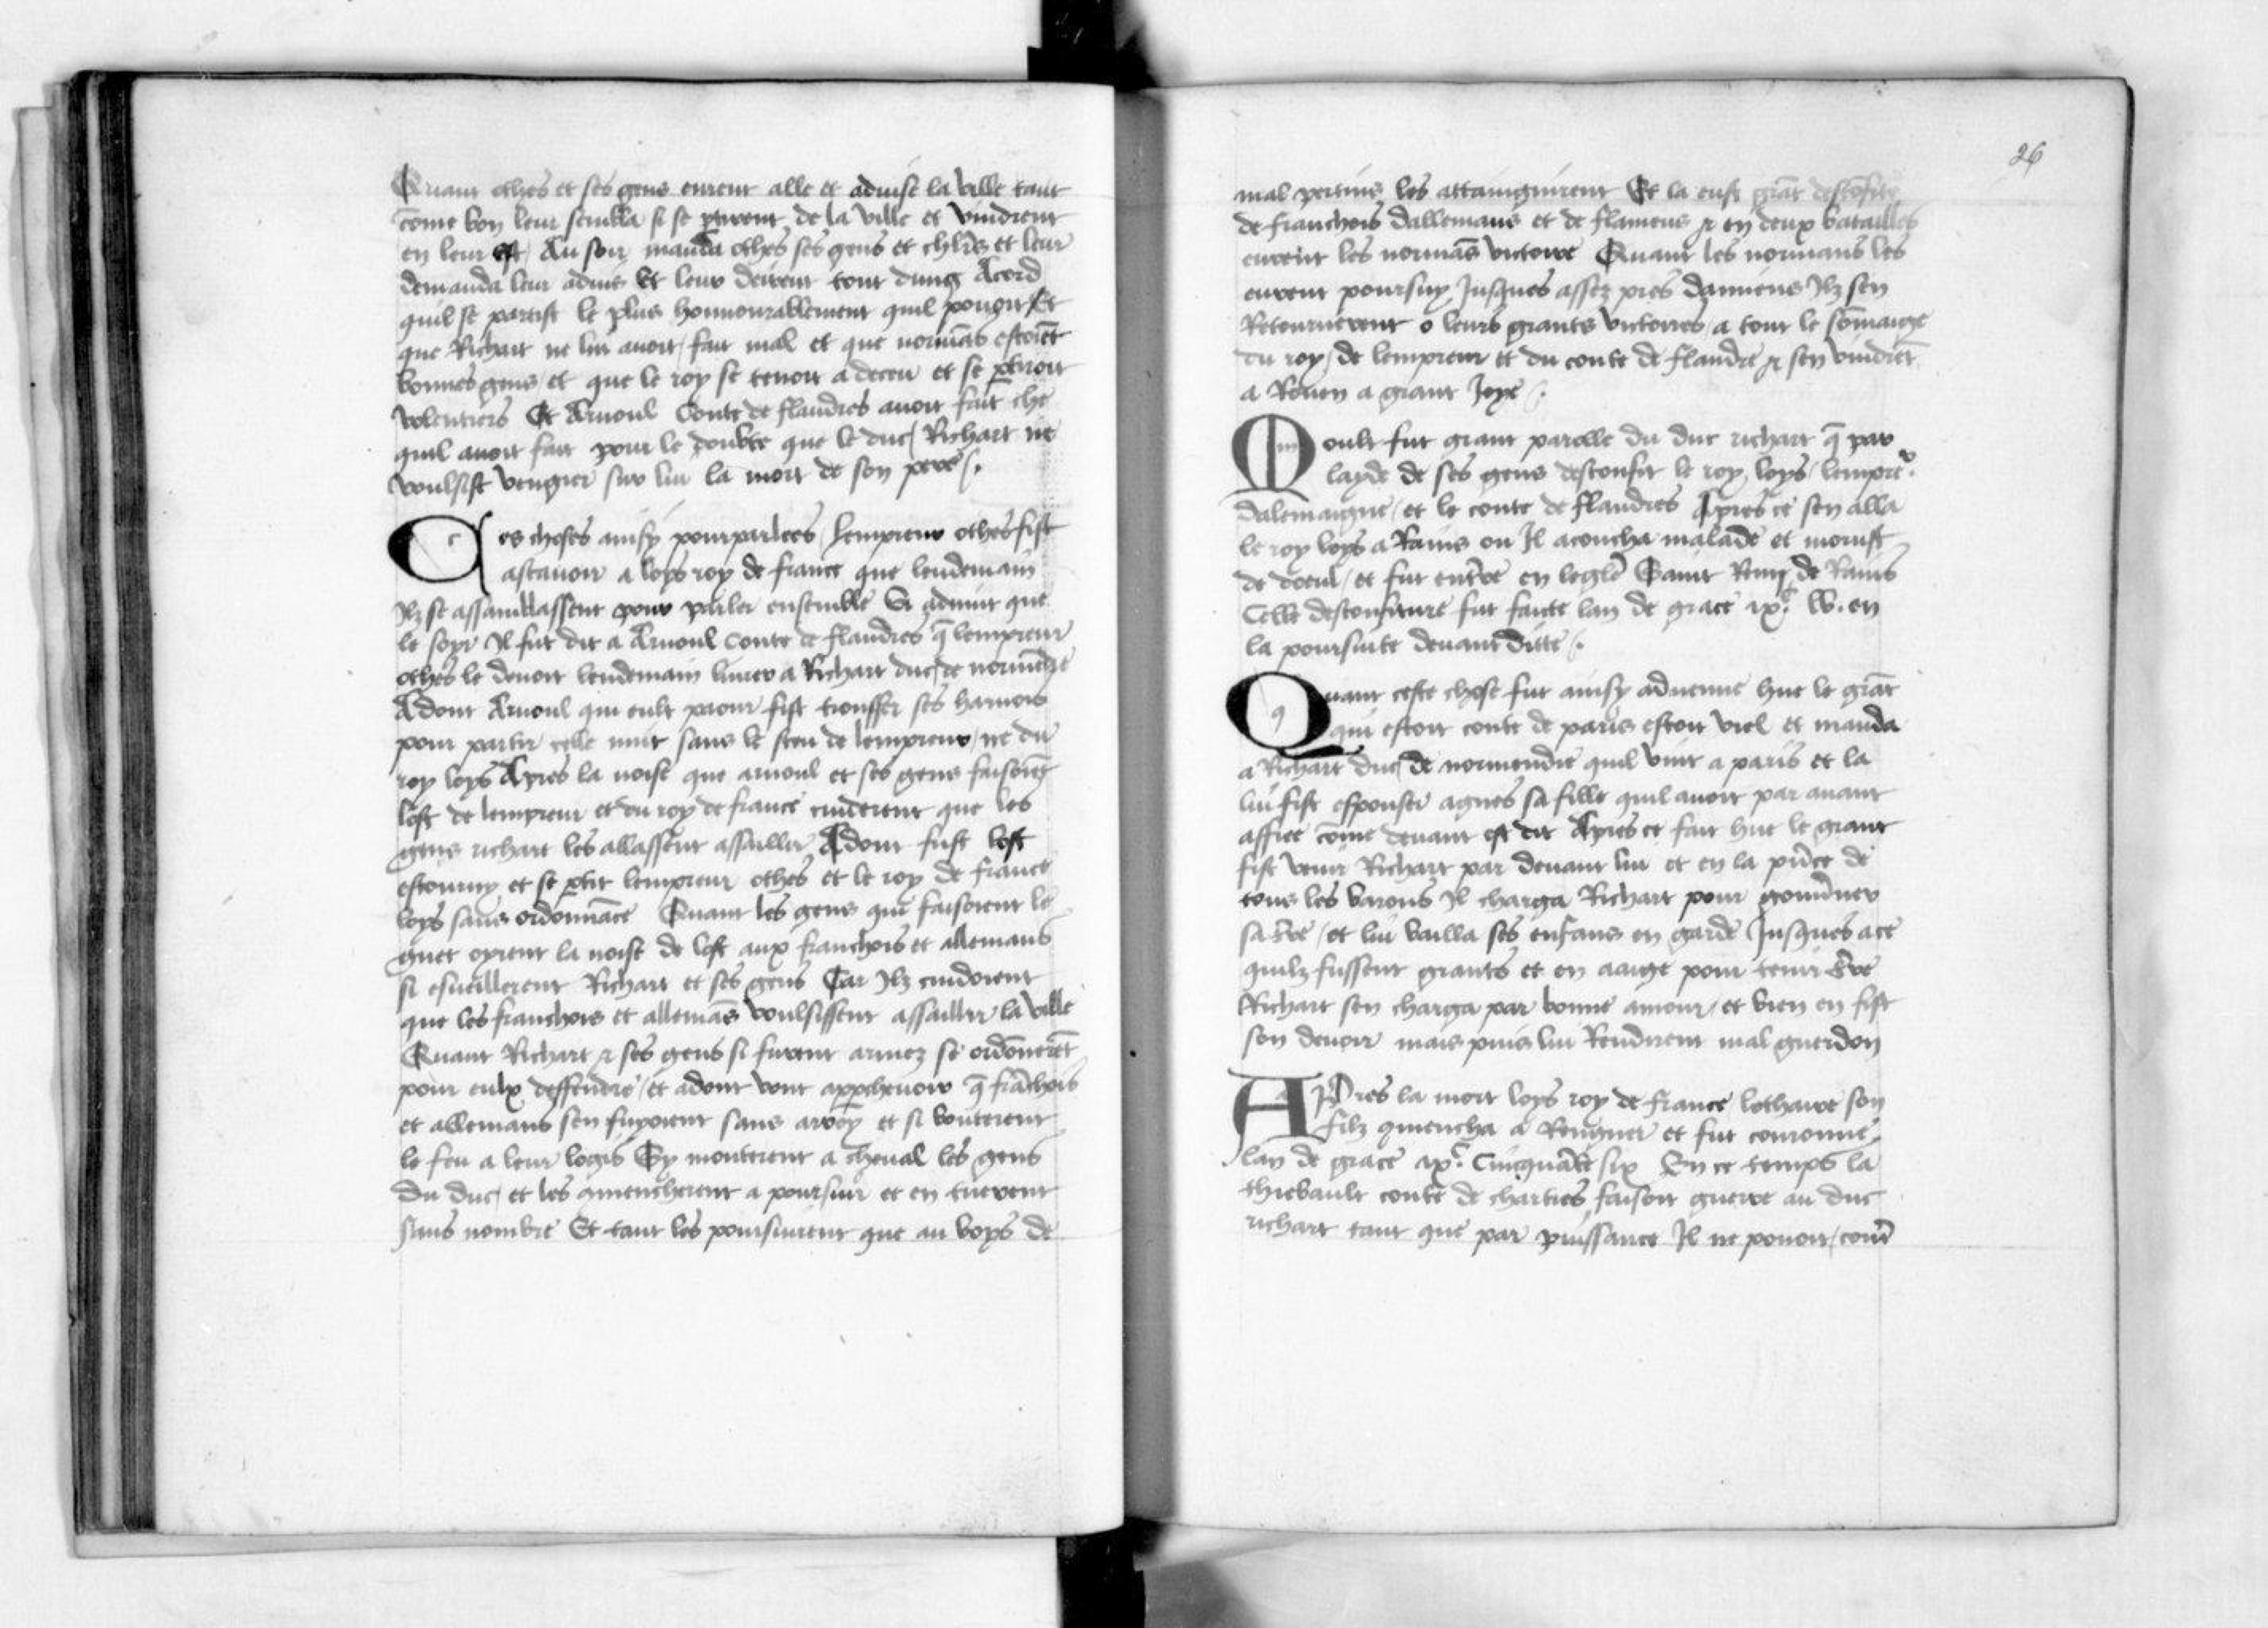 Quant othes et ses gens eurent alle et aduise la ville tant
cōme bon leur sembla si se ptirent de la ville et vindrent
en leur ost / Au soir manda othes ses gens et chlrs et leur
demanda leur aduis Et leur deirent tout dung Acord
quil se partist le plus honnourablement quil pouoit Et
que Richart ne lui auoit fait mal et que normās estoiēt
bonnes gens et que le roy se tenoit a deceu et se ptiroit
volentiers Et Arnoul Conte de flandres auoit fait che
quil auoit fait pour le doubte que le duc Richart ne
voulsist vengier sur lui la mort de son pere /.
Ces choses ainsy pourparlees / Lempreur othes fist
assauoir a loys roy de france que lendemain
Ilz se assamblassent pour parler ensemble Si aduint que
le soyr Il fut dit a Arnoul Conte de flandres q̄ lempreur
othes le deuoit lendemain liurer a Richart duc de normēdie
Adont Arnoul qui eult paour fist trousser ses harnois
pour partir celle nuit sans le sceu de lempreur / ne du
roy loys Apres la noise que arnoul et ses gens faisoiēt
lost de lempreur et du roy de france cuiderent que les
gens richart les allassent assaillir Adont fust lost
estourmy et se ptit lempreur othes et le roy de france
loys sans ordonnāce Quant les gens qui faisoient le
guet oyrent la noise de lost aux franchois et allemans
si esueillerent Richart et ses gens Car Ilz cuidoient
que les franchois et allemās voulsissent assaillir la ville
Quant Richart et ses gens si furent armez se ordōnerēt
pour eulx deffendre / et adont vont appcheuoir q̄ frāchois
et allemans sen fuyoient sans aroy et si bouterent
le feu a leur logis Sy monterent a cheual les gens
du duc / et les cōmencherent a poursuir et en tuerent
sans nombre Et tant les poursuirent que au boys de
26
mal pertuis les attaignirent Et la eust grāt descōfite
de franchois dallemans et de flamens et en deux batailles
eurent les normās victoire Quant les normans les
eurent poursuy Jusques assez pres damiens Ilz sen
Retournerent o leurs grants victoires / a tout le sōmaige
du roy / de lempreur et du conte de flandre et sen vindrēt
a Rouen a grant Joye /.
Moult fut grant parolle du duc richart q̄ par
layde de ses gens desconfit le roy loys / lempreʳ
dalemaigne / et le conte de flandres Apres ce sen alla
le roy loys a Rains ou Il acoucha malade et morust
de doeul / et fut entrre en leglē Saint Remy de Rains
Celle desconfiture fut faicte lan de grace ixᶜ lv. en
la poursuite deuant ditte /.
Quant ceste chose fut ainsy aduenue hue le grāt
qui estoit conte de paris estoit viel et manda
a Richart duc de normendie quil vint a paris et la
lui fist espouser agnes sa fille quil auoit par auant
affiee cōme deuant est dit Apres ce fait hue le grant
fist venir Richart par deuant lui et en la pn̄ce de
tous les barons Il charga Richart pour gouu̇ner
sa tr̄re / et lui bailla ses enfans en garde Jusques ace
quilz fussent grants et en aaige pour tenir tr̄re
Richart sen charga par bonne amour / et bien en fist
son deuoir mais puis lui Rendirent mal guerdon
APres la mort loys roy de france lothaire son
filz cmencha a Rengner et fut couronne
lan de grace ixᶜ Cinquāte six En ce temps la
thiebault conte de chartres faisoit guerre au duc
richart tant que par puissance Il ne pouoit / cont̄